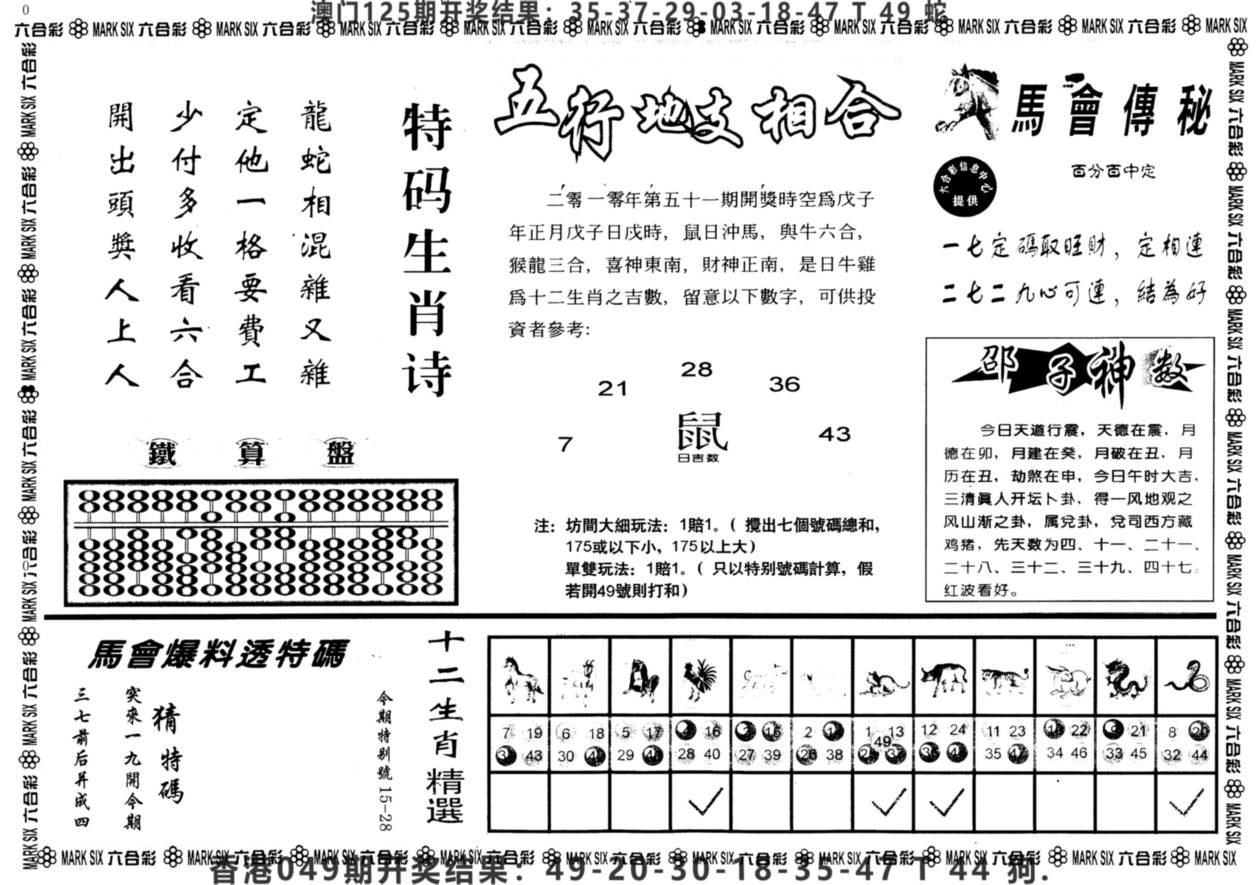 0
澳门125期开奖结果：35-37-29-03-18-47 T 49 蛇
六合彩 MARK SIX 六合彩 MARK SIX 六合彩 MARK SIX 六合彩 MARK SIX 六合彩 MARK SIX 六合彩 MARK SIX 六合彩 MARK SIX 六合彩 MARK SIX 六合彩 MARK SIX 六合彩 MARK SIX
特码生肖诗
龍蛇相混雜又雜
定他一格要費工
少付多收看六合
開出頭獎人上人
鐵算盤
五行地支相合
二零一零年第五十一期開獎時空爲戊子
年正月戊子日戌時，鼠日沖馬，與牛六合，
猴龍三合，喜神東南，財神正南，是日牛雞
爲十二生肖之吉數，留意以下數字，可供投
資者參考：
28
21
36
7
鼠
43
日吉数
注：坊間大細玩法：1賠1。（攪出七個號碼總和，
175或以下小，175以上大）
單雙玩法：1賠1。（只以特别號碼計算，假
若開49號則打和）
馬會傳秘
六合彩信息中心
提供
百分百中定
一七定碼取旺財，定相連
二七二九心可連，結為好
邵子神数
今日天道行震，天德在震，月
德在卯，月建在癸，月破在丑，月
历在丑，劫煞在申，今日午时大吉，
三清眞人开坛卜卦，得一风地观之
风山渐之卦，属兌卦，兌司西方藏
鸡猪，先天数为四、十一、二十一、
二十八、三十二、三十九、四十七。
红波看好。
馬會爆料透特碼
今期特别號 15-28
猜特碼
突來一九開今期
三七前后并成四
十二生肖精選
7 19 6 18 5 17 16 2 1 13 12 24 11 23 22 21 8
49
43 30 29 28 40 27 39 26 38 35 34 46 33 45 32 44
香港049期开奖结果：49-20-30-18-35-47 T 44 狗.
MARK SIX 六合彩 MARK SIX 六合彩 MARK SIX 六合彩 MARK SIX 六合彩 MARK SIX 六合彩 MARK SIX 六合彩 MARK SIX 六合彩 MARK SIX 六合彩 MARK SIX 六合彩 MARK SIX